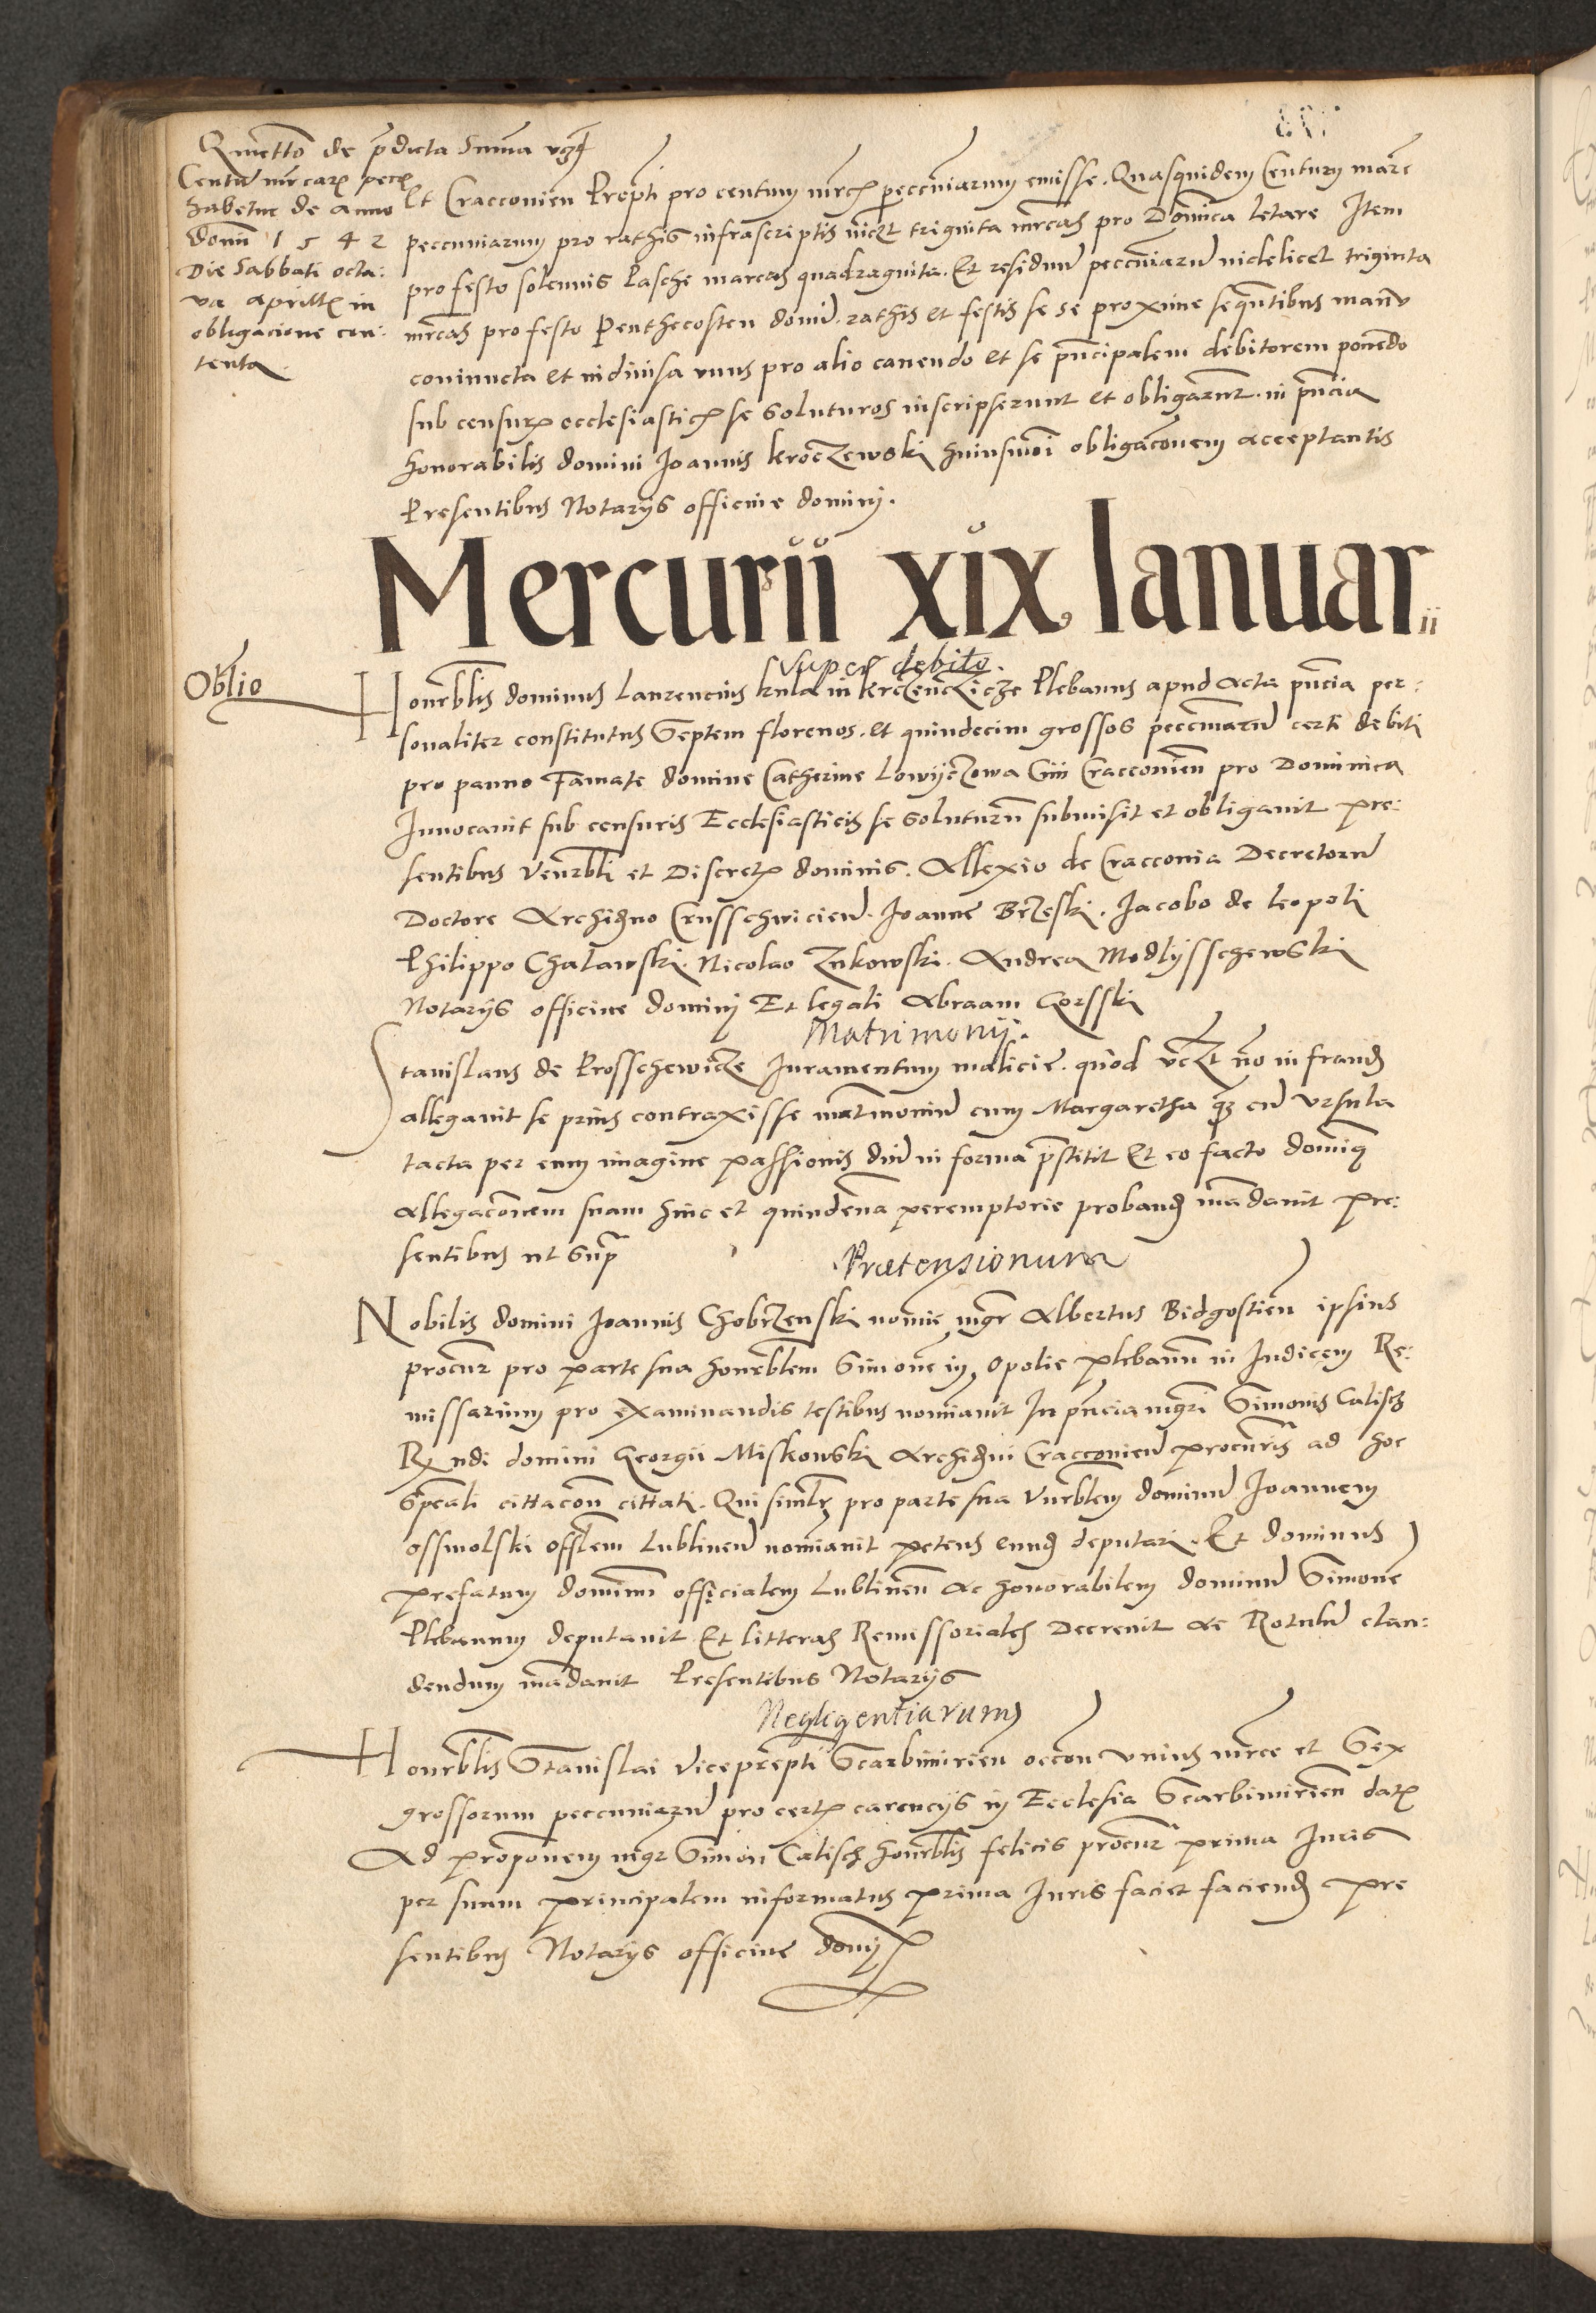 Quietto de p̄dicta Summa vz
Centū mrcarꝝ pecc
habetur de anno
domī 1542
Die Sabbati octa:
va aprilis in
obligacione con:
tenta
et Cracconieñ Prepti pro centum mrcꝫ peccuniarum emisse. Quasquidem Centum marc
peccuniarum pro rathis infrascriptis niczt triginta mrcas pro Dominica letare Item
pro festo solennis Pasche marcas quadraginta. Et residuū peccuniarū videlicet triginta
mrcas pro festo Penthecosten domī. rathis et festis se se proxime sequntibus manu
coniuncta et indiuisa vnus pro alio cauendo et se principalem debitorem ponendo
sub censuris ecclesiasticis se soluturos inscripserunt et obligarunt. in pñcia
honorabilis domini Joannis Kroczewski huiusmōi obligacōnem acceptantis
Presentibus Notariis officine domini.
Mercurii xix Ianuarii
Super debito.
Obl̄io
Honorblis dominus Laurencius Kula in Krczenczicze Plebanus apud Acta pñcia per:
sonaliter constitutus Septem florenos. et quindecim grossos peccuniarū certi debiti
pro panno Famate domine Catherine Lowyczowa Ciui Cracconieñ pro Dominica
Inuocauit sub censuris Ecclesiasticis se soluturū submisit et obligauit pre:
sentibus Venrbli et Discretis dominis. Allexio de Cracconia Decretorū
Doctore Archidño Crusschwicień. Joanne Brzeski. Jacobo de leopoli
Philippo Chalawski. Nicolao Zukowski. Andrea Modlysschewski
Notariis officine domini Et legali Abraam Gorsski
Matrimonij.
Stanislaus de Prosschewicze Iuramentum malicie. quod vczt nō in fraudē
allegauit se prius contraxisse matrimoniū cum Margaretha qꝫ cū Vrsula
tacta per eum imagine passionis dnī in forma p̄stitit Et eo facto dominꝰ
allegacōnem suam hinc et quindena peremptorie probandā mādauit pre:
sentibus ut sup̄
Prætensionum
Nobilis domini Joannis Chobrzenski nomie mgr Albertus Bidgostień ipsius
procur pro parte sua honorblem Simonē in Opolie plebanū in Iudicem Re:
missarium pro examinandis testibus nominauit In pñcia mgri Simonis Calisch
Rndi domini Georgii Miskowski Archidñi Cracconień procuris ad hoc
speali cittacōn cittati. Qui simlr pro parte sua Vnrblem dominū Joannem
Ossmolski Offlem Lublineñ nominauit petens eundē deputari. Et dominus
prefatum dominū officialem Lublineñ ac honorabilem dominū Simonē
Plebanum deputauit Et litteras Remissoriales Decreuit ac Rotulū clau:
dendum mandauit Presentibus Notariis
Negligentiarum
Honorblis Stanislai Viceprepti Scarbimirieñ occōn vnius mrce et Sex
grossorum peccuniarū pro certis carenciis in Ecclesia Scarbimirieñ datis
Ad proponem mgr Simon Calisch honorblis felicis procur prima Iuris
per suum principalem informatus prima Iuris faciet faciendā pre
sentibus Notariis officine domij